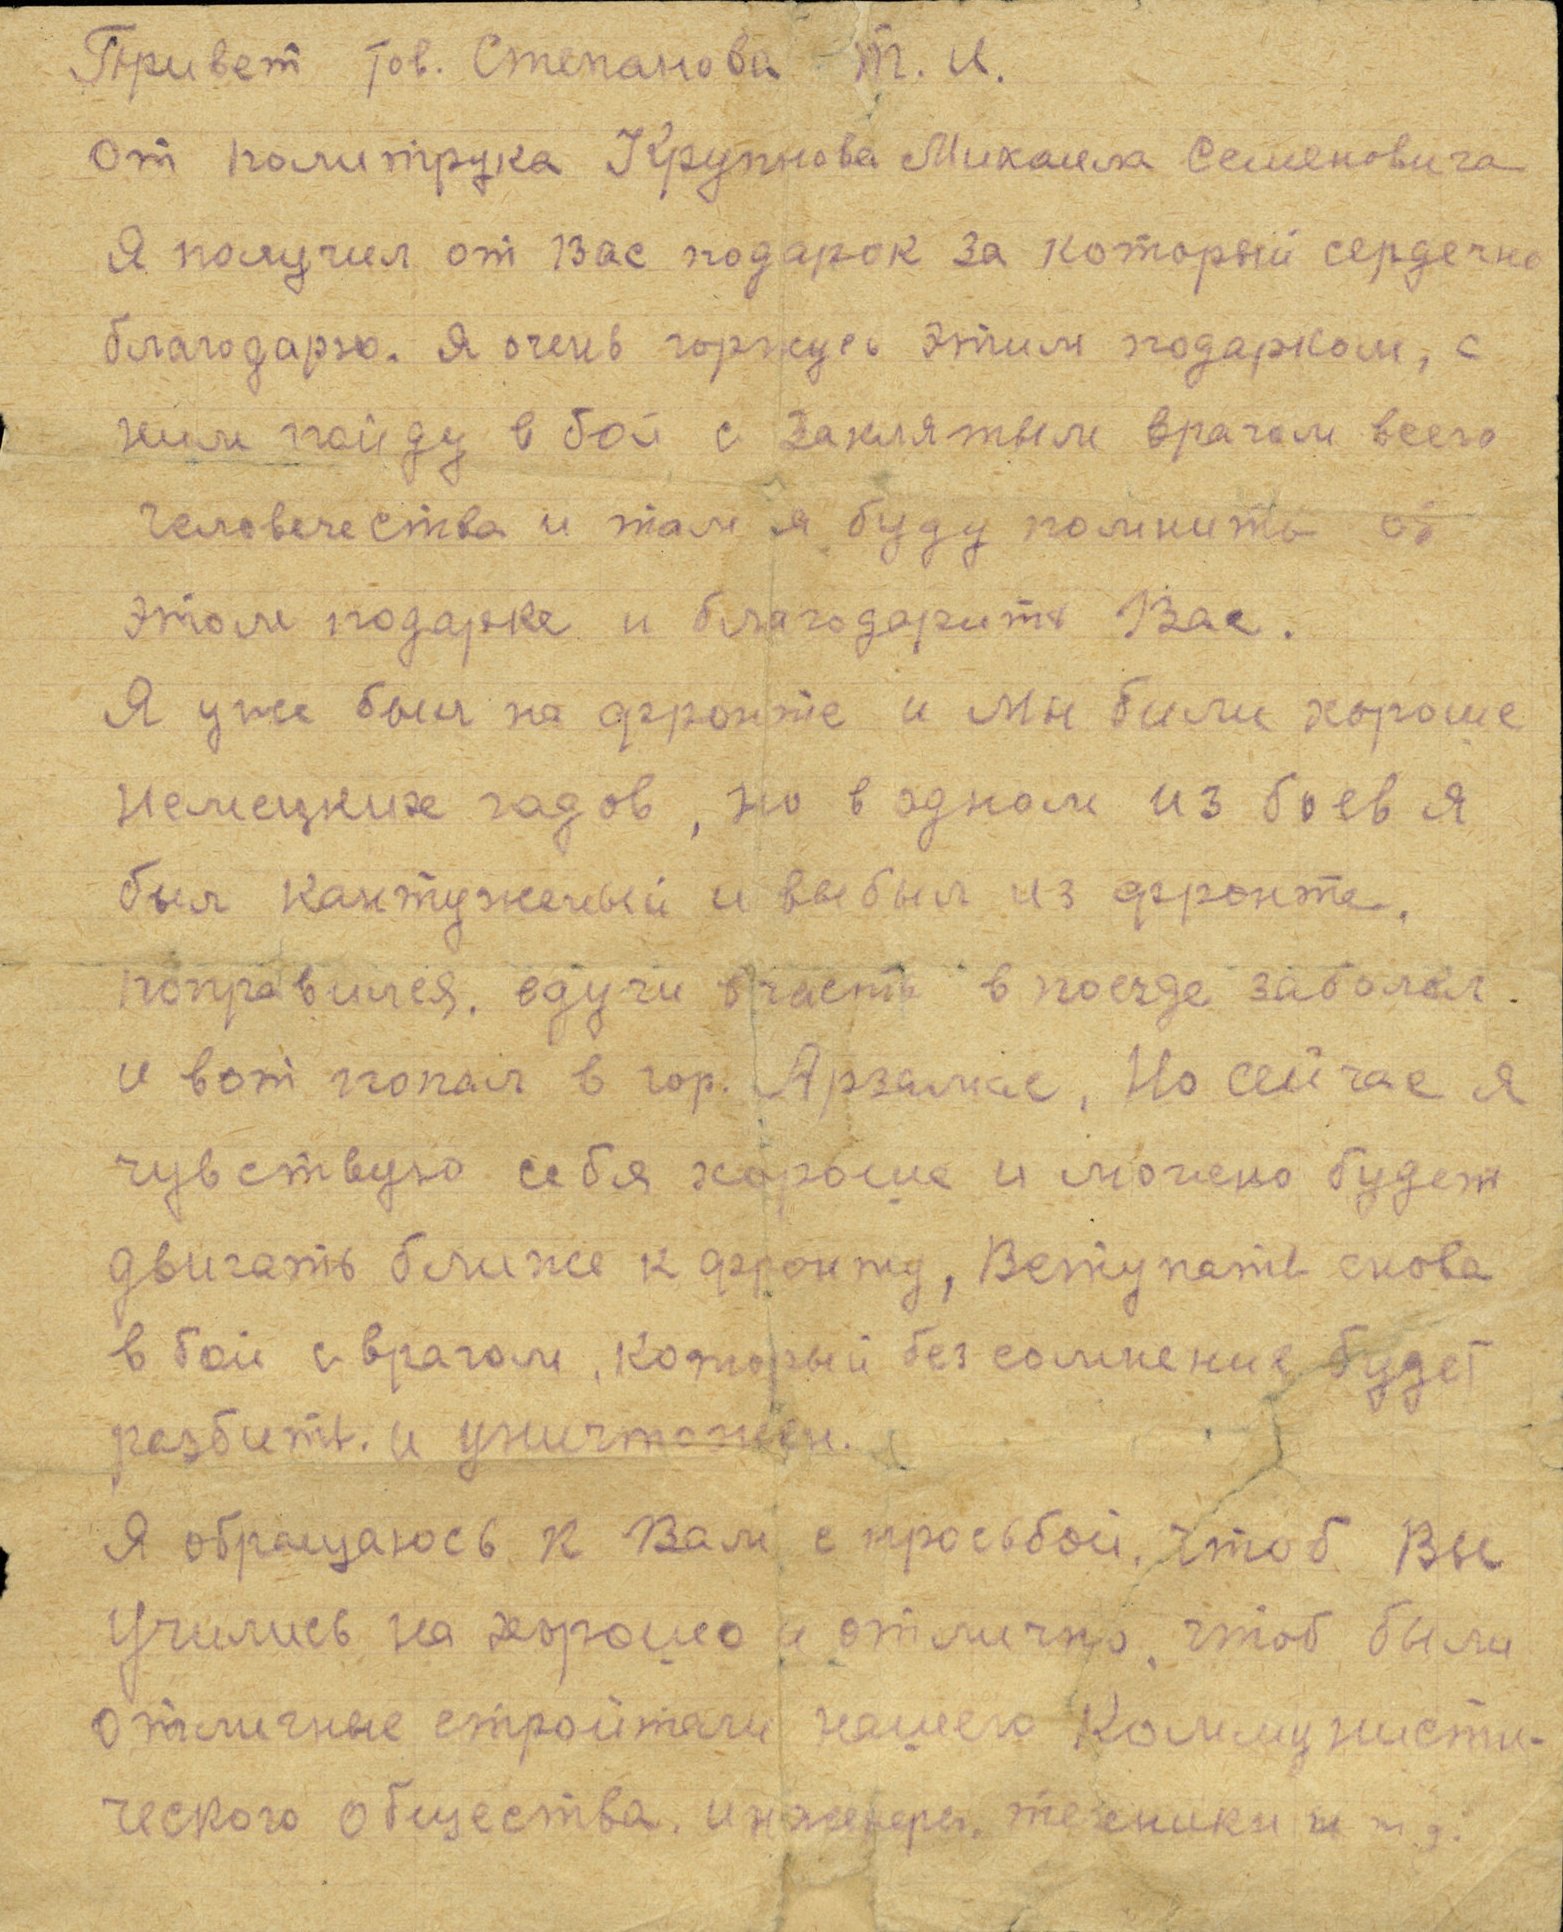 Привет тов. Степанова Т. И.
от политрука Крупнова Михаила Семеновича
Я получил от Вас подарок за который сердечно
благодарю. Я очень горжусь этим подарком, с
ним пойду в бой с заклятым врагом всего
человечества и там я буду помнить об
этом подарке и благодарить Вас.
Я уже был на фронте и мы били хороше
немецких гадов, но в одном из боев я
был кантуженый и выбыл из фронта.
поправился, едучи в часть в поезде заболел
и вот попал в гор. Арзамас, Но сейчас я
чувствую себя хороше и можно будет
двигать ближе к фронту, Вступать снова
в бой с врагом, который без сомнение будет
разбить. и уничтожен.
Я обращаюсь к Вам с просьбой, чтоб Вы
Учились на хорошо и отлично, чтоб были
отличные стройтели нашего Коммунисти-
ческого общества. инженеры, техники и т.д.